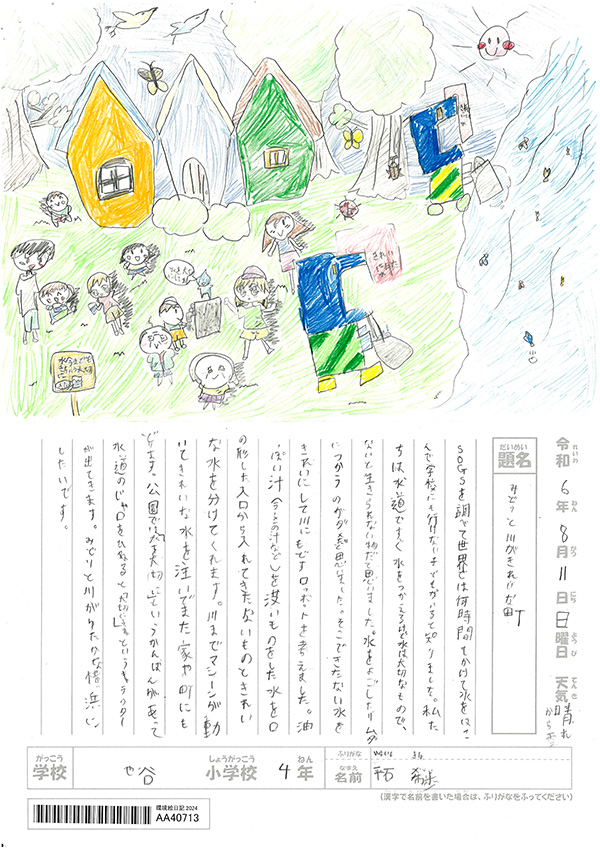 水を大切にね
きれいになった
令和6年8月11日日曜日 天気 晴れから雲
れいわ ねん がつ にち ようび てんき
だいめい
題名
みどりと川がきれいな町
SDGSを調べて世界では何時間もかけて水をはこ
んで学校にも行けない子どもがいると知りました。私た
ちは、水道ですぐ水をつかえるけど水は大切なもので、
ないと生きられない物だと思いました。水をよごしたりムダ
につかうのがダメだと思いました。そこできたない水を
きれいにして川にもどすロボットを考えました。油
っぽい汁 の汁など を洗いものをした水を口
の形した入口から入れてきたないものときれい
な水を分けてくれます。川までマシーンが動
いてきれいな水を注いでまた家や町にも
どします。公園では水を大切にというかんばんがあって
水道のじゃ口をひねると大切に というキャラクター
が出てきます。みどりと川がゆたかな横浜に
したいです。
がっこう しょうがっこう ねん ふりがな
学校 谷 小学校 4年 なまえ 名前
(漢字で名前を書いた場合は、ふりがなをふってください)
環境絵日記2024
AA40713